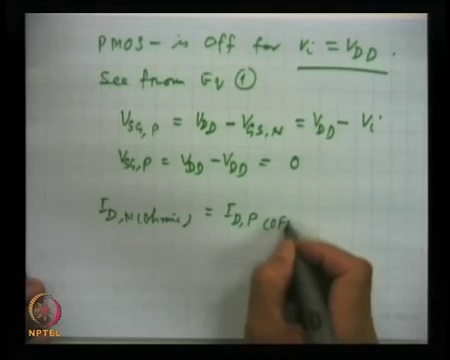 PMOS - is Off for Vi = VDD.
See from EV ①
VSG,P = VDD - VGS,N = VDD - Vi
VSG,P = VDD - VDD = 0
ID,N (Ohmic) = ID,P (OF
NPTEL